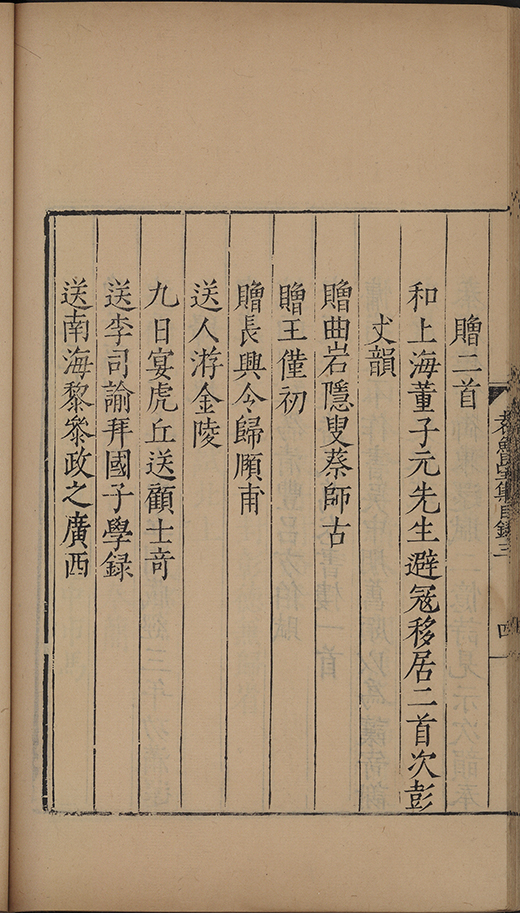 贈二首
和上海董子元先生避冦移居二首次彭
丈韻
贈曲岩隱叟蔡師古
贈王僅初
贈長興令歸願甫
送人游金陵
九日宴虎丘送顧士奇
送李司諭拜國子學録
送南海黎叅政之廣西
集目録三
四